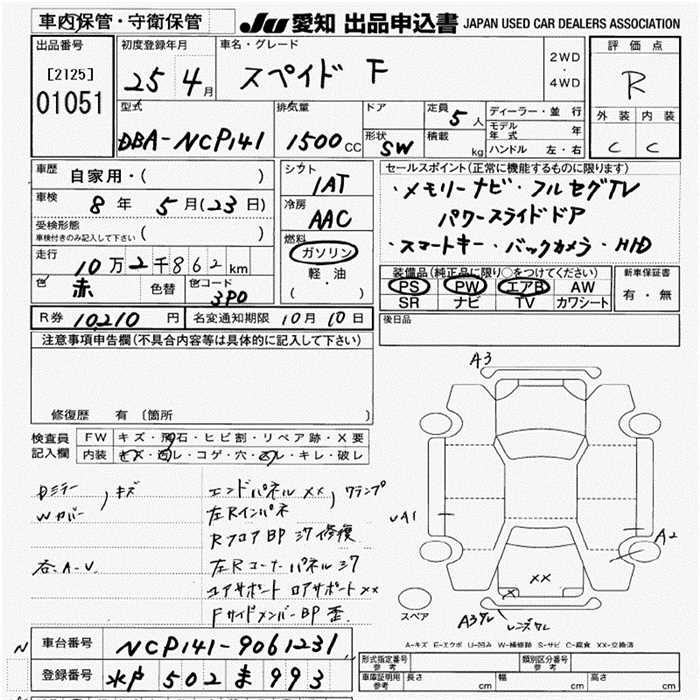 車内保管・守衛保管
JU 愛知 出品申込書 JAPAN USED CAR DEALERS ASSOCIATION
出品番号
[2125]
01051
初度登録年月
25 4月
車名・グレード
スペイド F
2WD
・
4WD
評価点
R
外装 内装
C C
型式
DBA-NCP141
排気量
1500 CC
ドア
形状
SW
定員
5人
積載
kg
ディーラー・並行
モデル年式 年
ハンドル 左・右
車歴
自家用・( )
車検
8年 5月(23日)
受検形態
車検付きのみ記入して下さい ( )
走行
10万2千862km
色
赤
色替
色コード
3P0
シフト
IAT
冷房
AAC
燃料
ガソリン
軽・油
( )
セールスポイント(正常に機能するものに限ります)
・メモリーナビ・フルセグTV
パワースライドドア
・スマートキー・バックカメラ・HID
装備品(純正品に限り○をつけてください)
PS PW エアB AW
SR ナビ TV カワシート
新車保証書
有・無
R券 10210円
名変通知期限 10月10日
後日品
注意事項申告欄(不具合内容等は具体的に記入して下さい)
修復歴 有〔箇所 〕
検査員
記入欄
FW キズ・飛石・ヒビ割・リペア跡・X要
内装 キズ・コゲ・穴・キレ・破レ
Dミラー
Wカバー
キズ
エンドパネルXX, クランプ
左Rインパネ
Rフロア BP シワ修復
左Rコーナーパネルシワ
コアサポート ロアサポートXX
FサイドメンバーBP歪
A3
A1
A2
XX
X
スペア
A-キズ E-エクボ U-凹み W-補修跡 S-サビ C-腐食 XX-交換済
車台番号 NCP141-9061231
登録番号 水戸 502 ま 993
型式指定番号
参考
類別区分番号
参考
車庫証明用
参考
長さ cm
幅 cm
高さ cm